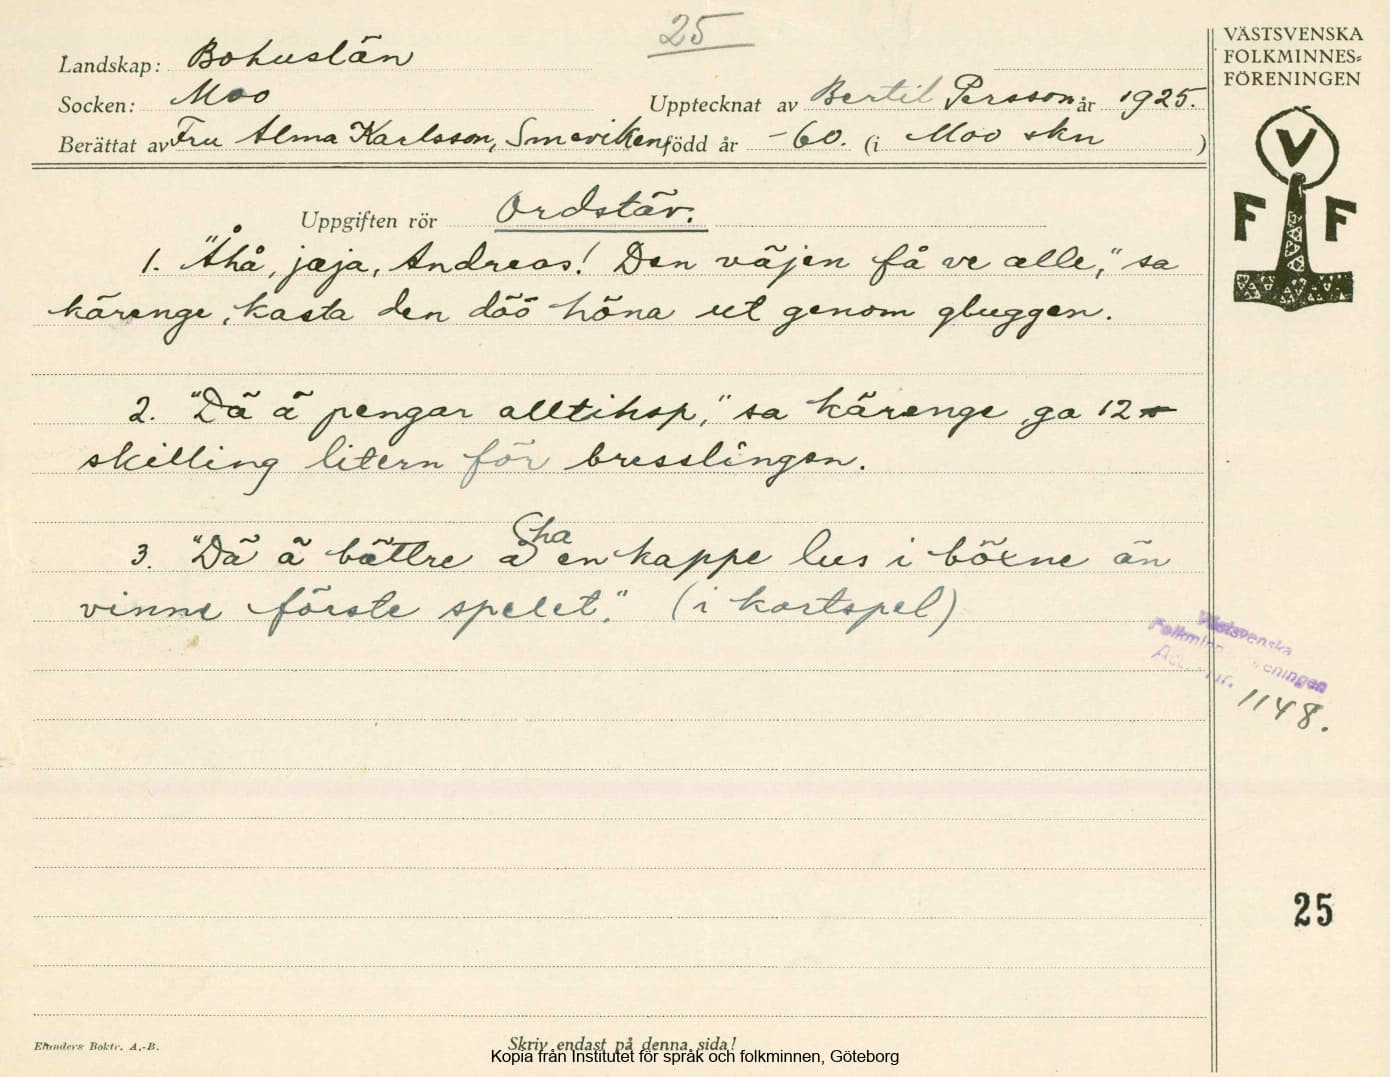 25
VÄSTSVENSKA
FOLKMINNES=
FÖRENINGEN
Landskap: Bohuslän
Socken: Moo
Upptecknat av Bertil Persson år 1925.
Berättat av Fru Alma Karlsson, Smeviken född år -60. (i Moo skn )
V
F F
Uppgiften rör Ordstäv.
1. "Åhå, jaja, Andreas! Den väjen få ve alle," sa
kärenge, kasta den döö höna ut genom gluggen.
2. "Dä ä pengar alltihop," sa kärenge, ga 12
skilling litern för bresslingen.
3. "Dä ä bättre å ha en kappe lus i böxne än
vinne förste spelet." (i kortspel)
Västsvenska
Folkminnesföreningen
Acc. nr. 1148.
25
Elanders Boktr. A.-B.
Skriv endast på denna sida!
Kopia från Institutet för språk och folkminnen, Göteborg